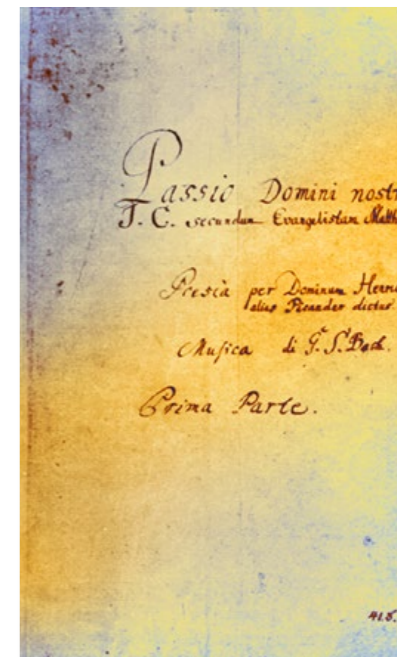 Passio Domini nost
J. C. secundum Evangelistam Matth
Poesia per Dominum Henri
alias Picander dictus
Musica di G. S. Bach.
Prima Parte.
41.5.